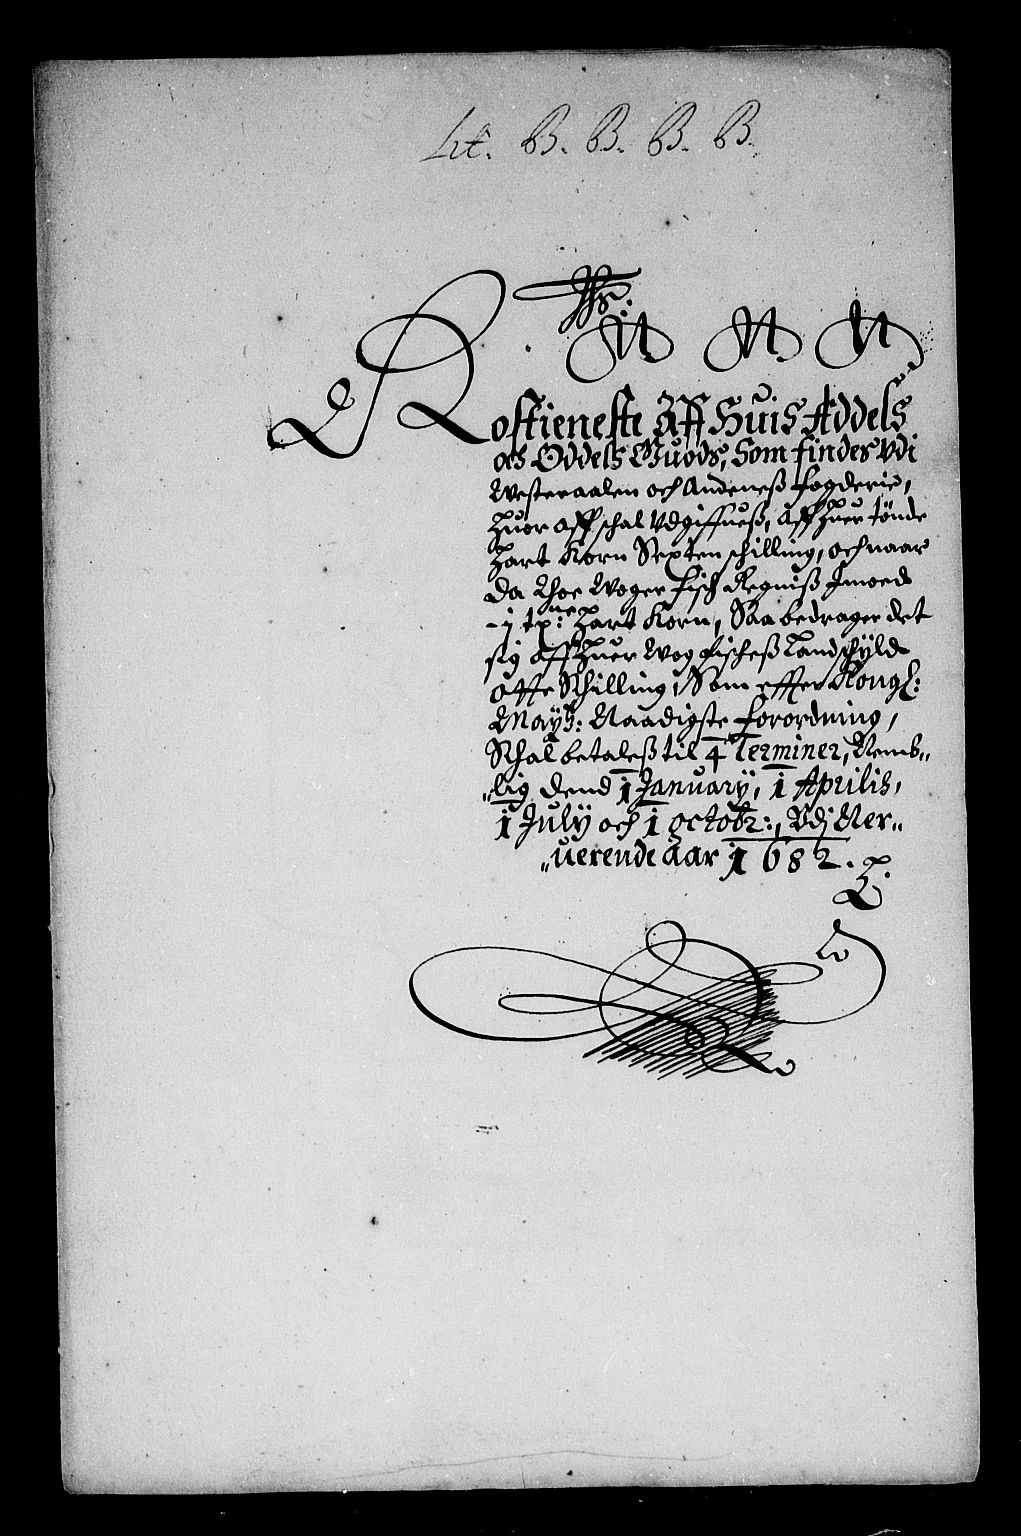 Lit. B. B. B. B.
N N N
Rostieneste Aff Huis Addels
och Oddels Guods, Som findes Vdi
Westeraalen och Andeneß fogderie,
Huor aff schal Vdgiffueß, Aff Huer tønde
Hart Korn Sexten schilling, och naar
da thoe Woger fisch Regniß Imoed
1 tø:ne Hart Korn, Saa bedrager det
sig aff Huer Wog fischeß Landschyld
otte Schilling, Som effter Kongl:
Mayts: Naadigste forordning,
Schal betaleß til 4 Terminer, Nemb„
„lig dend 1 January, 1 Aprilis,
1 July och 1 octobr:, Vdj Ner„
„uerende aar 1682.